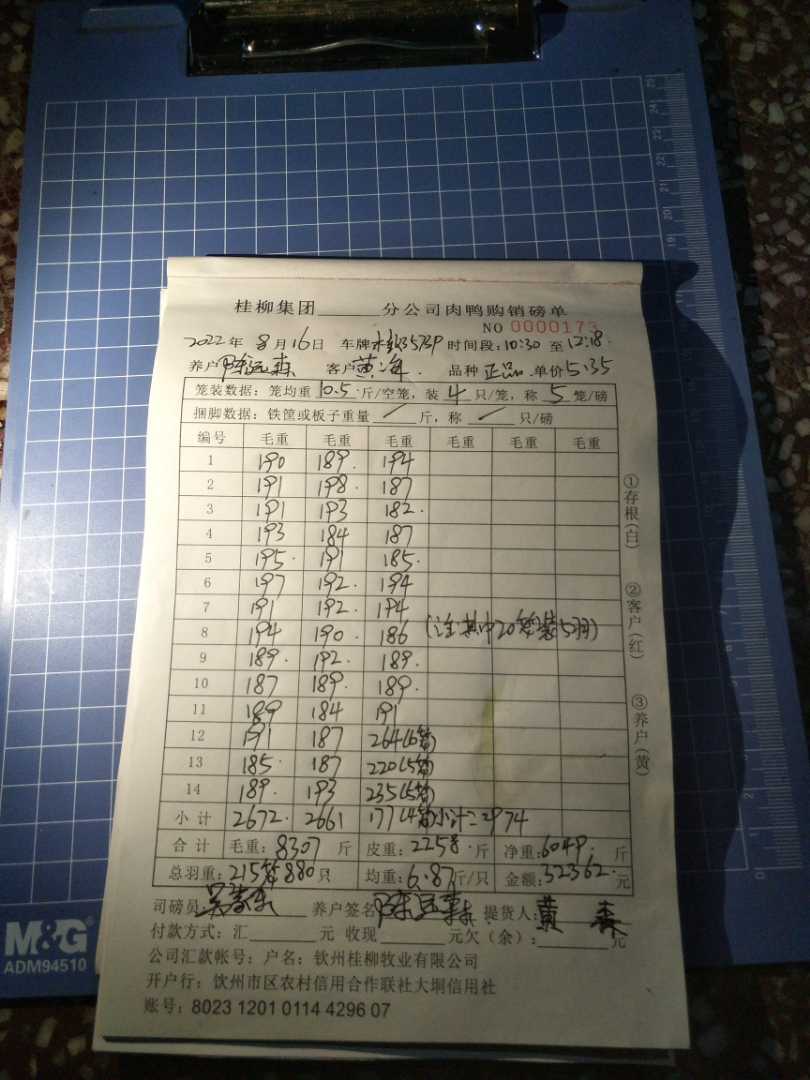 桂柳集团______分公司肉鸭购销磅单
NO 0000173
2022年 8月16日 车牌 时间段:10:30 至 12:18.
养户 陈远森 客户 黄 品种 正品. 单价 5.35
笼装数据: 笼均重 10.5 斤/空笼, 装 4 只/笼, 称 5 笼/磅
捆脚数据: 铁筐或板子重量 / 斤, 称 / 只/磅
编号 毛重 毛重 毛重 毛重 毛重 毛重
1 190 189. 194
2 191 198. 187
3 191 193 182.
4 193 184 187
5 195. 191 185.
6 197 192. 194
7 191 192. 194
8 194 190. 186 (注:其中20笼装5羽)
9 189. 192. 189.
10 187 189. 189.
11 189 184 191
12 191 187 264(6笼)
13 185. 187 220(5笼)
14 189. 193 235(5笼)
小计 2672. 2661 177(4笼)小计=2974
合计 毛重: 8307 斤 皮重: 2258. 斤 净重: 6049. 斤
总羽重: 215笼880只 均重: 6.87斤/只 金额: 32362.元
司磅员: 养户签名 陈远森 提货人: 黄
付款方式: 汇______元 收现______元欠(余):______元
公司汇款帐号: 户名: 钦州桂柳牧业有限公司
开户行: 钦州市区农村信用合作联社大垌信用社
账号: 8023 1201 0114 4296 07
①存根(白)
②客户(红)
③养户(黄)
M&G
ADM94510
25
24
23
22
21
20
19